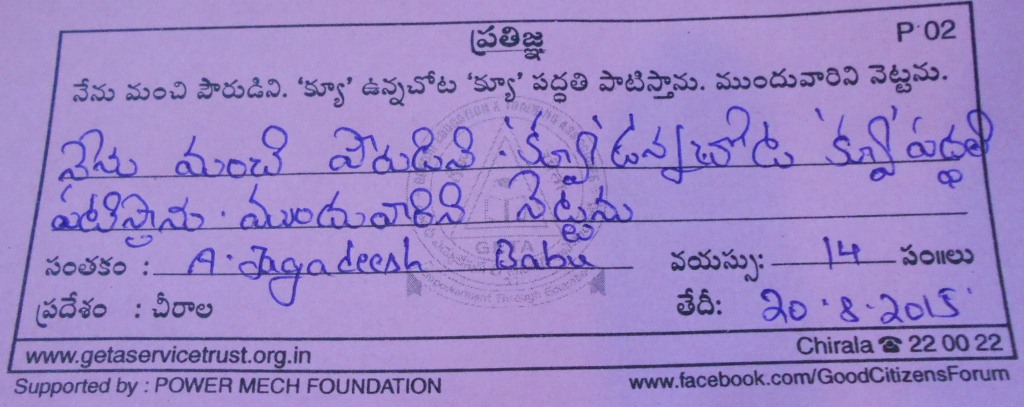 ప్రతిజ్ఞ P 02
నేను మంచి పౌరుడిని. 'క్యూ' ఉన్నచోట 'క్యూ' పద్ధతి పాటిస్తాను. ముందువారిని నెట్టను.
నేను మంచి పౌరుడిని. 'క్యూ' ఉన్నచోట 'క్యూ' పద్ధతి
పాటిస్తాను. ముందువారిని నెట్టను
సంతకం : A. Jagadeesh Babu వయస్సు: 14 సం॥లు
ప్రదేశం : చీరాల తేదీ: 20.8.2015
www.getaservicetrust.org.in Chirala ☎ 22 00 22
Supported by : POWER MECH FOUNDATION www.facebook.com/GoodCitizensForum
GETA